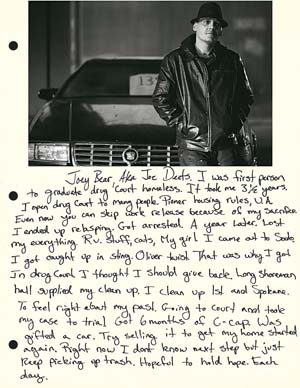 Joey Bear, AKA Joe Deets. I was first person
to graduate drug court homeless. It took me 3½ years.
I open drug court to many people. Pioner housing rules, U.A
Even now you can skip work release because of my sacrifice
I ended up relapsing. Got arrested. A year later. Lost
my everything. R.V. stuff, cats, My girl I came out to Sodo,
I got caught up in sting. Oliver twist. That was why I got
In drug court. I thought I should give back. Longshoreman
hall supplied my clean up. I clean up 1st and Spokane.
To feel right about my past. Going to court and took
my case to trial Got 6 months of C-cap. Was
gifted a car. Try selling it to get my home started
again. Right now I dont know next step but just
Keep picking up trash. Hopeful to hold hope. Each
day.